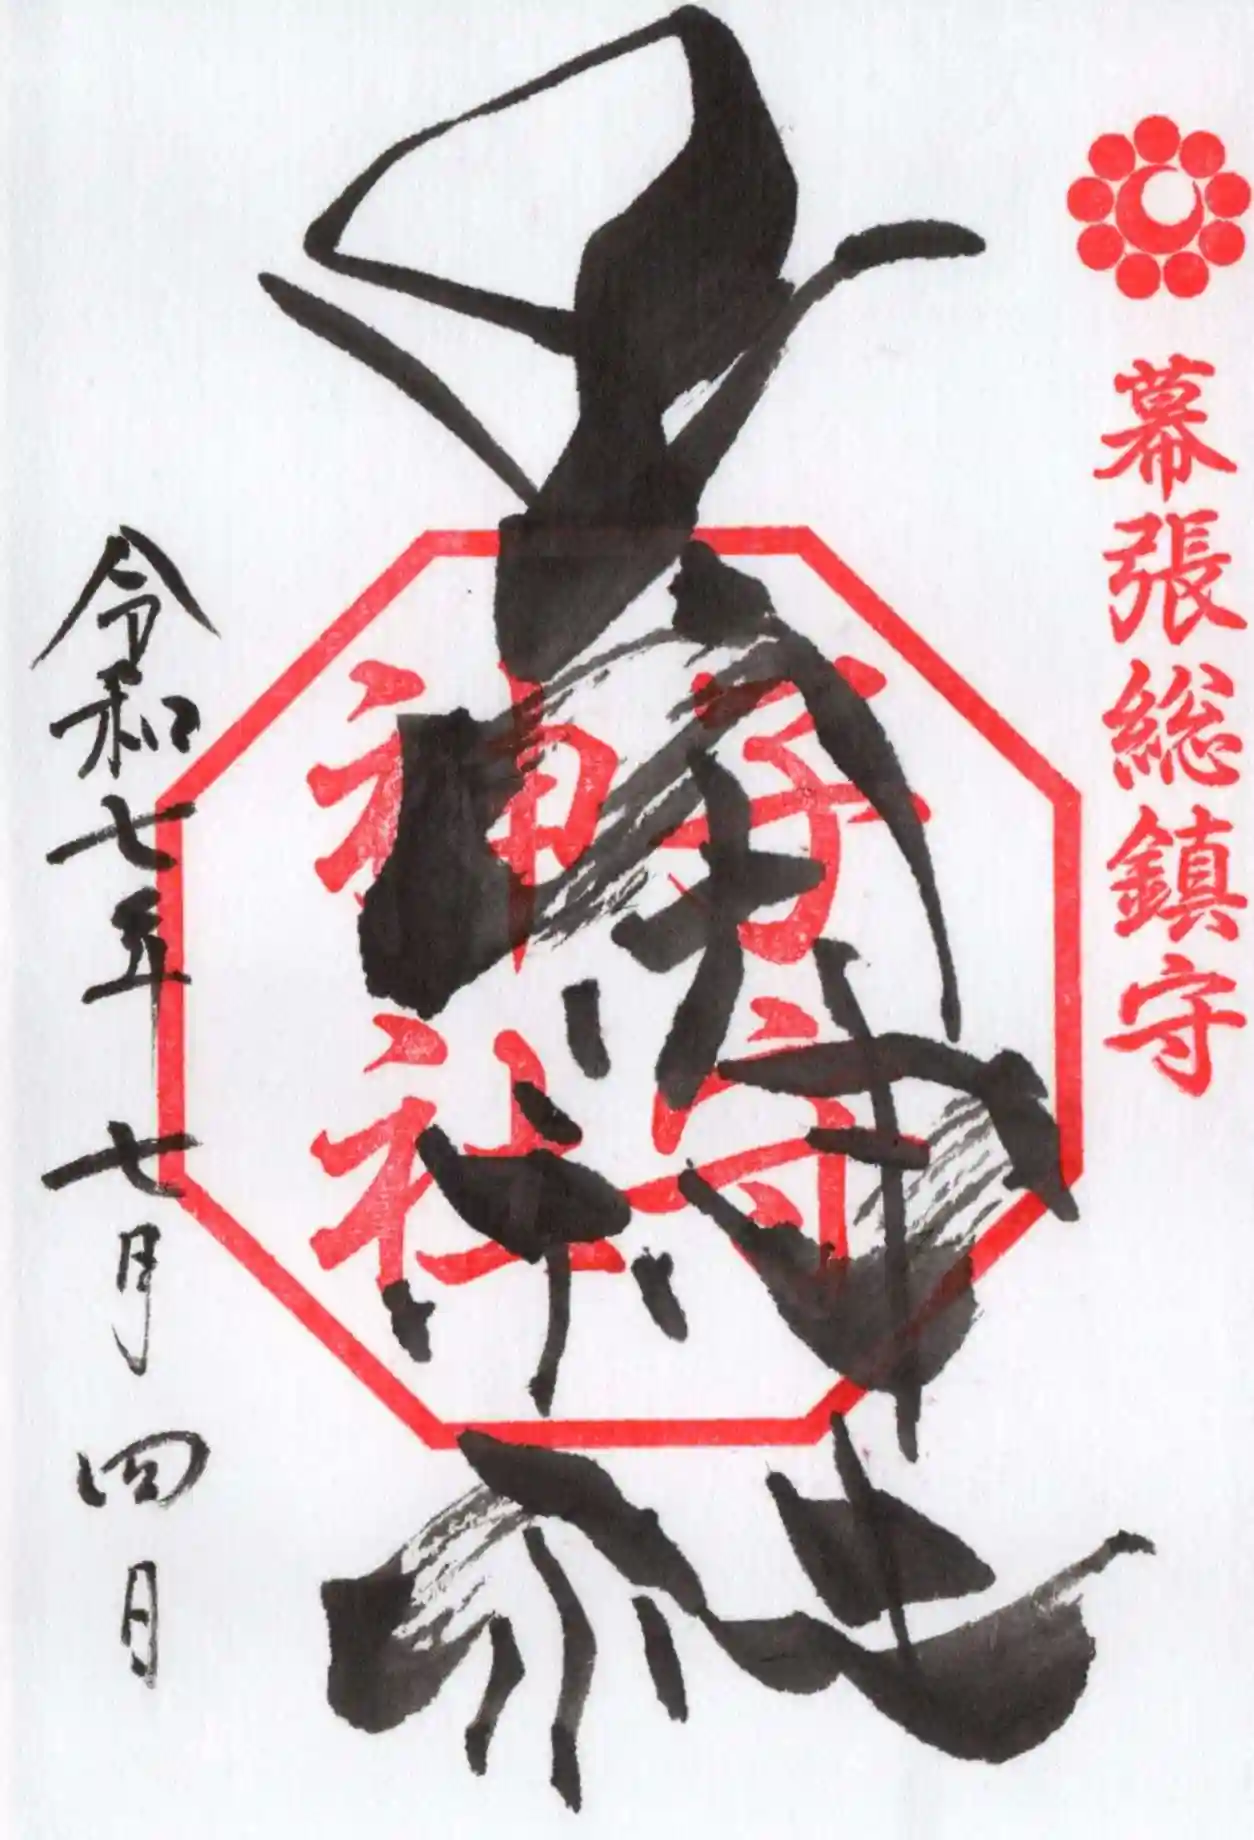 幕張総鎮守
子守神社
子守
神社
令和七年七月四日